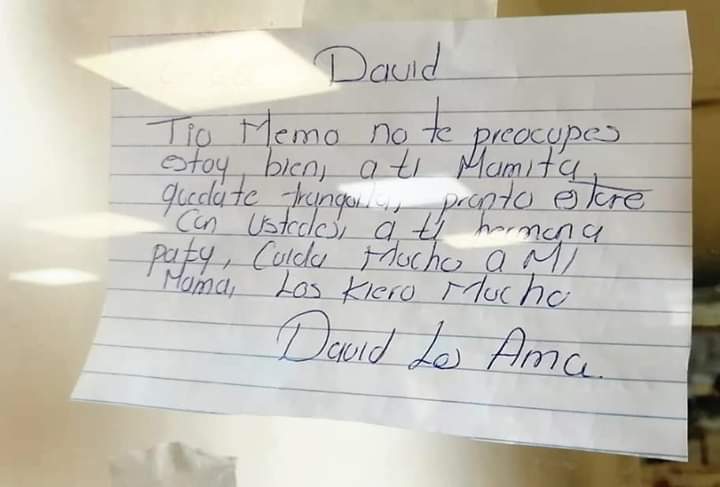 David
Tio Memo no te preocupes
estoy bien, a ti Mamita,
quedate tranquila, pronto estare
Con ustedes, a ti hermana
paty, Cuida Mucho a Mi
Mama, Los Kiero Mucho
David Los Ama.